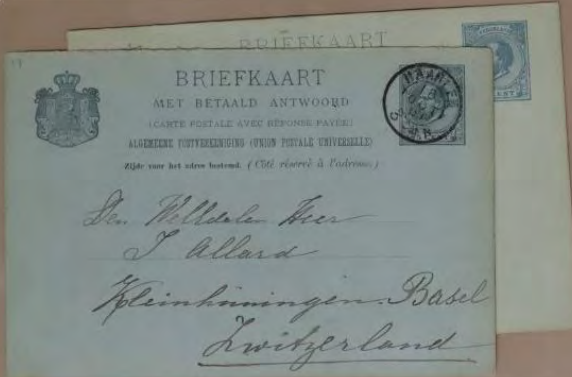 BRIEFKAART
BRIEFKAART
MET BETAALD ANTWOORD
(CARTE POSTALE AVEC RÉPONSE PAYÉE)
ALGEMEENE POSTVEREENIGING (UNION POSTALE UNIVERSELLE)
Zijde voor het adres bestemd. (Côté réservé à l'adresse.)
HAARLEM
Den WelEdelen Heer
J Allard
Kleinhüningen. Basel
Zwitzerland
CENT